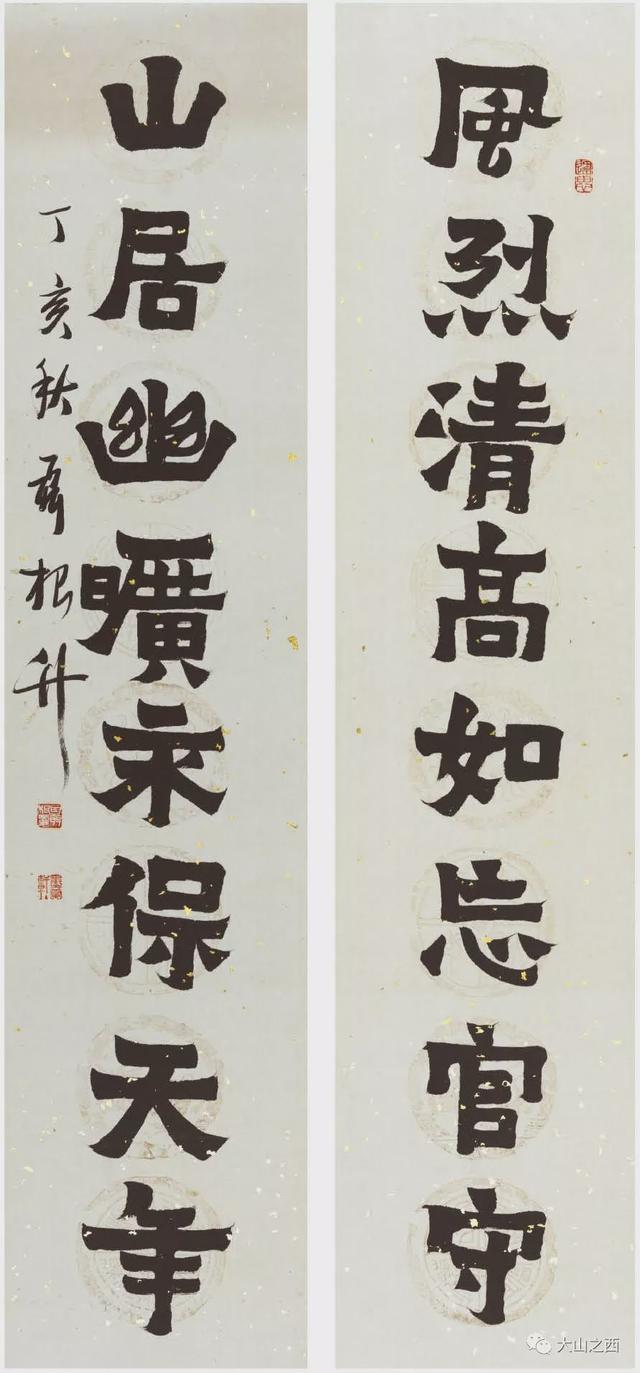 風烈清高如忘官守
山居幽曠永保天年
丁亥秋根升
大山之西